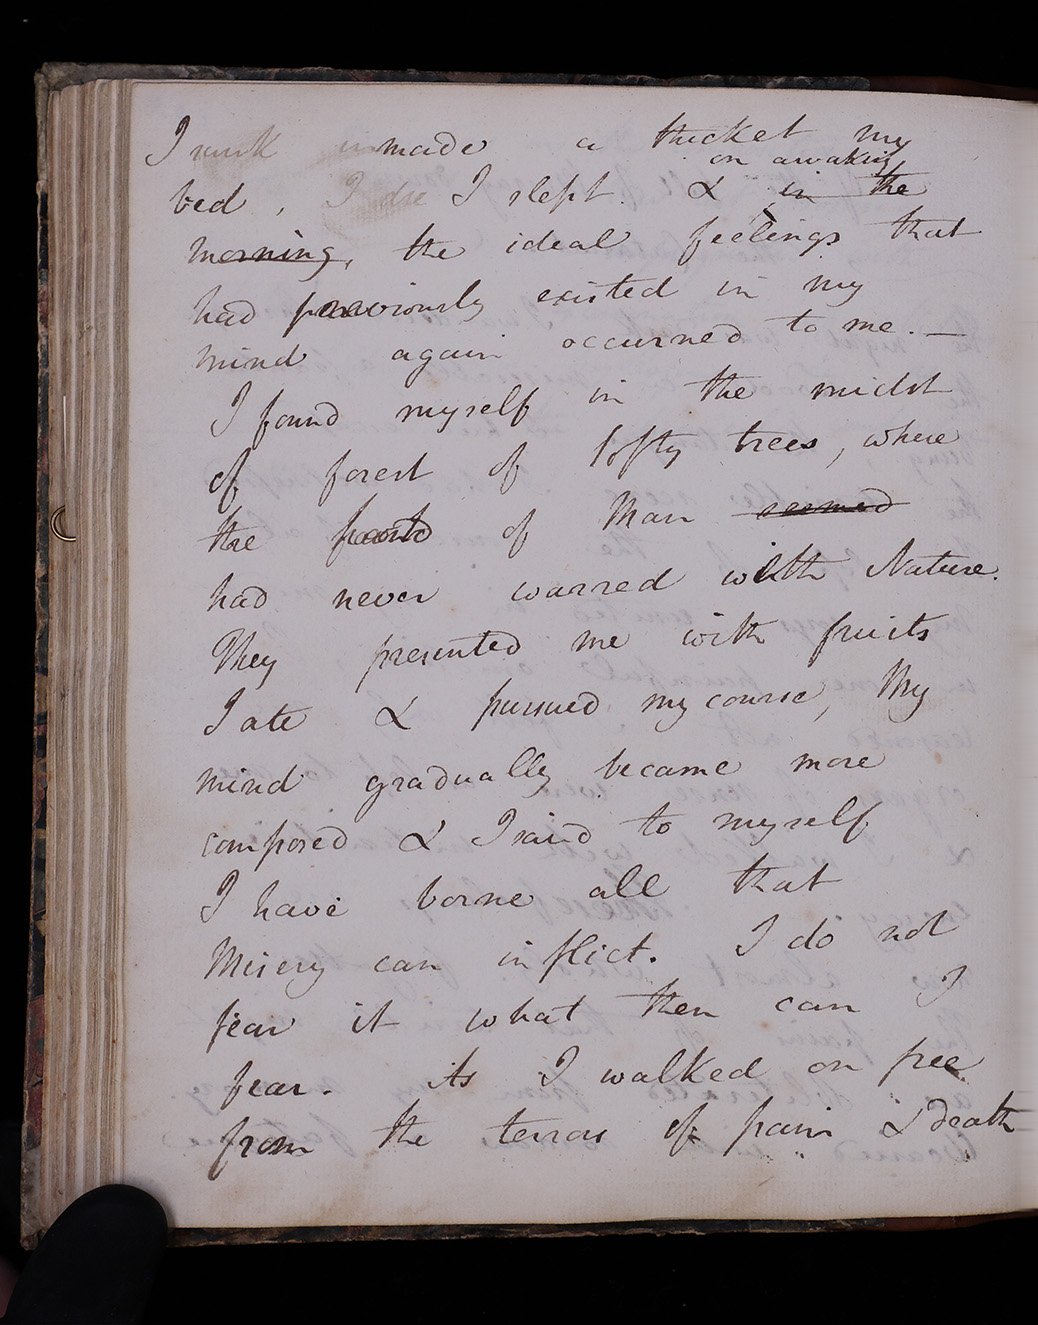 I sunk made a thicket my
on awaking
bed, I slept. & in the
morning, the ideal feelings that
had previously existed in my
mind again occurred to me. —
I found myself in the midst
of forest of lofty trees, where
the of Man seemed
had never warred with Nature.
They presented me with fruits
I ate & pursued my course, My
mind gradually became more
composed & I said to myself
I have borne all that
Misery can inflict. I do not
fear it what then can I
fear. As I walked on free
from the terrors of pain & death